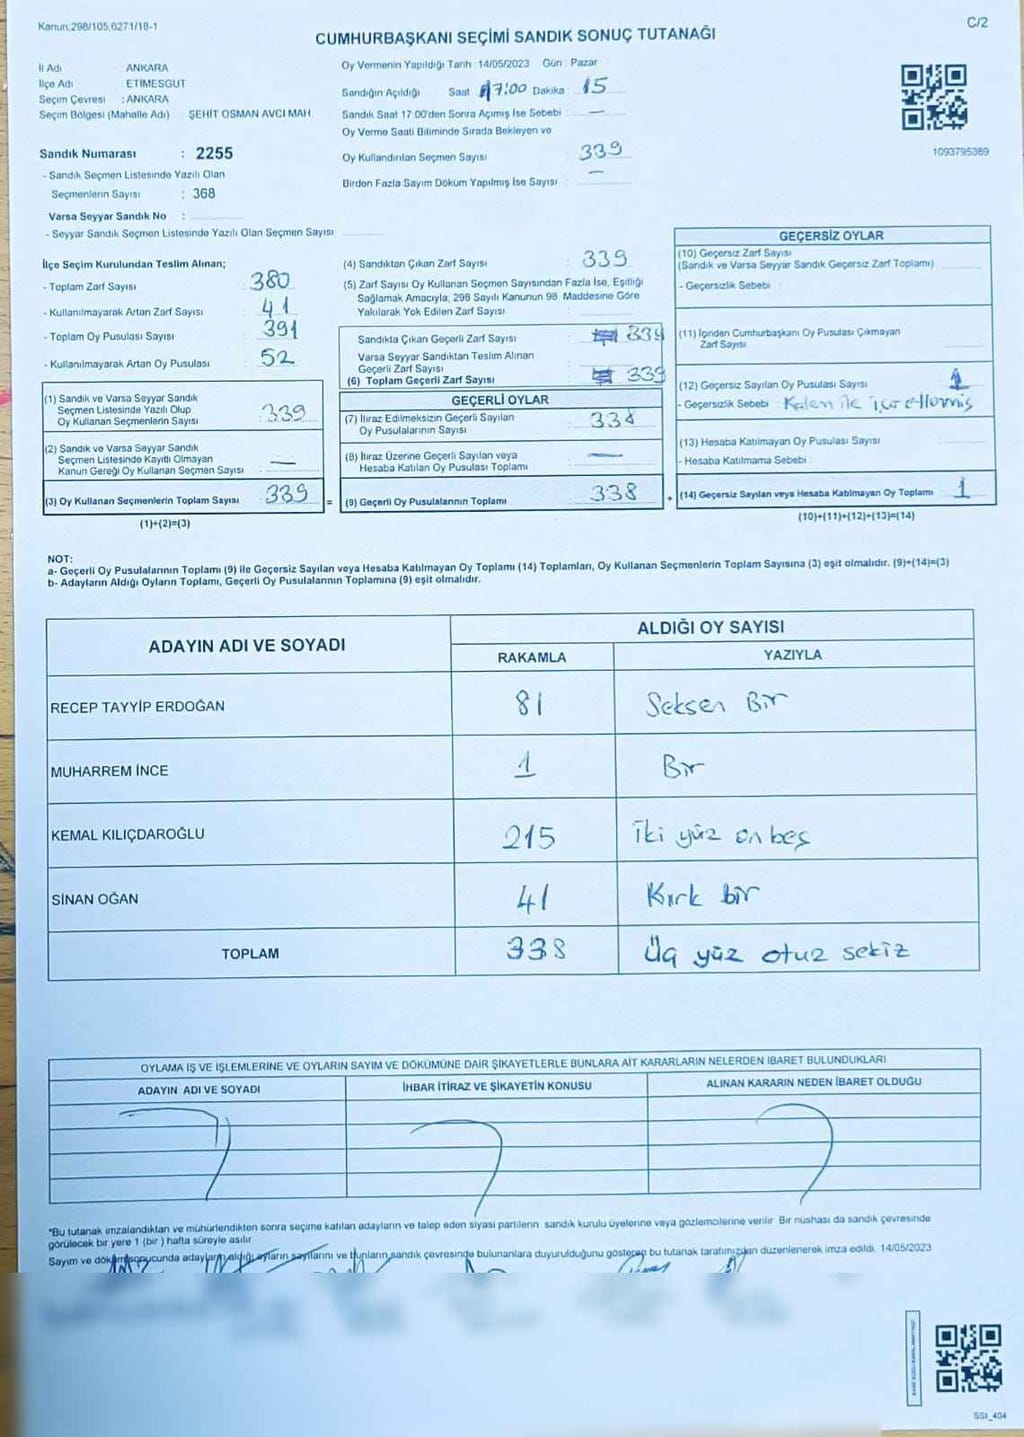 Kanun;298/105,6271/18-1
C/2
CUMHURBAŞKANI SEÇİMİ SANDIK SONUÇ TUTANAĞI
İl Adı : ANKARA
İlçe Adı : ETİMESGUT
Seçim Çevresi : ANKARA
Seçim Bölgesi (Mahalle Adı) : ŞEHİT OSMAN AVCI MAH
Sandık Numarası : 2255
- Sandık Seçmen Listesinde Yazılı Olan
Seçmenlerin Sayısı : 368
Varsa Seyyar Sandık No :
- Seyyar Sandık Seçmen Listesinde Yazılı Olan Seçmen Sayısı
Oy Vermenin Yapıldığı Tarih : 14/05/2023 Gün : Pazar
Sandığın Açıldığı Saat 17:00 Dakika : 15
Sandık Saat 17 00'den Sonra Açımış İse Sebebi : —
Oy Verme Saati Bitiminde Sırada Bekleyen ve
Oy Kullandırılan Seçmen Sayısı 339
Birden Fazla Sayım Döküm Yapılmış İse Sayısı : —
1093795389
İlçe Seçim Kurulundan Teslim Alınan;
- Toplam Zarf Sayısı : 380
- Kullanılmayarak Artan Zarf Sayısı : 41
- Toplam Oy Pusulası Sayısı : 391
- Kullanılmayarak Artan Oy Pusulası : 52
(1) Sandık ve Varsa Seyyar Sandık
Seçmen Listesinde Yazılı Olup
Oy Kullanan Seçmenlerin Sayısı : 339
(2) Sandık ve Varsa Seyyar Sandık
Seçmen Listesinde Kayıtlı Olmayan
Kanun Gereği Oy Kullanan Seçmen Sayısı : —
(3) Oy Kullanan Seçmenlerin Toplam Sayısı : 339 =
(1)+(2)=(3)
(4) Sandıktan Çıkan Zarf Sayısı : 339
(5) Zarf Sayısı Oy Kullanan Seçmen Sayısından Fazla İse, Eşitliği
Sağlamak Amacıyla, 298 Sayılı Kanunun 98. Maddesine Göre
Yakılarak Yok Edilen Zarf Sayısı :
Sandıkta Çıkan Geçerli Zarf Sayısı : 339
Varsa Seyyar Sandıktan Teslim Alınan
Geçerli Zarf Sayısı :
(6) Toplam Geçerli Zarf Sayısı : 339
GEÇERLİ OYLAR
(7) İtiraz Edilmeksizin Geçerli Sayılan
Oy Pusulalarının Sayısı : 338
(8) İtiraz Üzerine Geçerli Sayılan veya
Hesaba Katılan Oy Pusulası Toplamı : —
(9) Geçerli Oy Pusulalarının Toplamı : 338 +
GEÇERSİZ OYLAR
(10) Geçersiz Zarf Sayısı
(Sandık ve Varsa Seyyar Sandık Geçersiz Zarf Toplamı)
- Geçersizlik Sebebi :
(11) İçinden Cumhurbaşkanı Oy Pusulası Çıkmayan
Zarf Sayısı
(12) Geçersiz Sayılan Oy Pusulası Sayısı 1
- Geçersizlik Sebebi : Kalem ile
(13) Hesaba Katılmayan Oy Pusulası Sayısı
- Hesaba Katılmama Sebebi
(14) Geçersiz Sayılan veya Hesaba Katılmayan Oy Toplamı 1
(10)+(11)+(12)+(13)=(14)
NOT:
a- Geçerli Oy Pusulalarının Toplamı (9) ile Geçersiz Sayılan veya Hesaba Katılmayan Oy Toplamı (14) Toplamları, Oy Kullanan Seçmenlerin Toplam Sayısına (3) eşit olmalıdır. (9)+(14)=(3)
b- Adayların Aldığı Oyların Toplamı, Geçerli Oy Pusulalarının Toplamına (9) eşit olmalıdır.
ADAYIN ADI VE SOYADI
ALDIĞI OY SAYISI
RAKAMLA YAZIYLA
RECEP TAYYİP ERDOĞAN 81 Seksen Bir
MUHARREM İNCE 1 Bir
KEMAL KILIÇDAROĞLU 215 İki yüz on beş
SİNAN OĞAN 41 Kırk bir
TOPLAM 338 Üç yüz otuz sekiz
OYLAMA İŞ VE İŞLEMLERİNE VE OYLARIN SAYIM VE DÖKÜMÜNE DAİR ŞİKAYETLERLE BUNLARA AİT KARARLARIN NELERDEN İBARET BULUNDUKLARI
ADAYIN ADI VE SOYADI İHBAR İTİRAZ VE ŞİKAYETİN KONUSU ALINAN KARARIN NEDEN İBARET OLDUĞU
*Bu tutanak imzalandıktan ve mühürlendikten sonra seçime katılan adayların ve talep eden siyasi partilerin sandık kurulu üyelerine veya gözlemcilerine verilir Bir nüshası da sandık çevresinde
görülecek bir yere 1 (bir ) hafta süreyle asılır
Sayım ve döküm sonucunda adayların aldığı oyların sayılarını ve bunların sandık çevresinde bulunanlara duyurulduğunu gösteren bu tutanak tarafımızdan düzenlenerek imza edildi. 14/05/2023
SSI_404